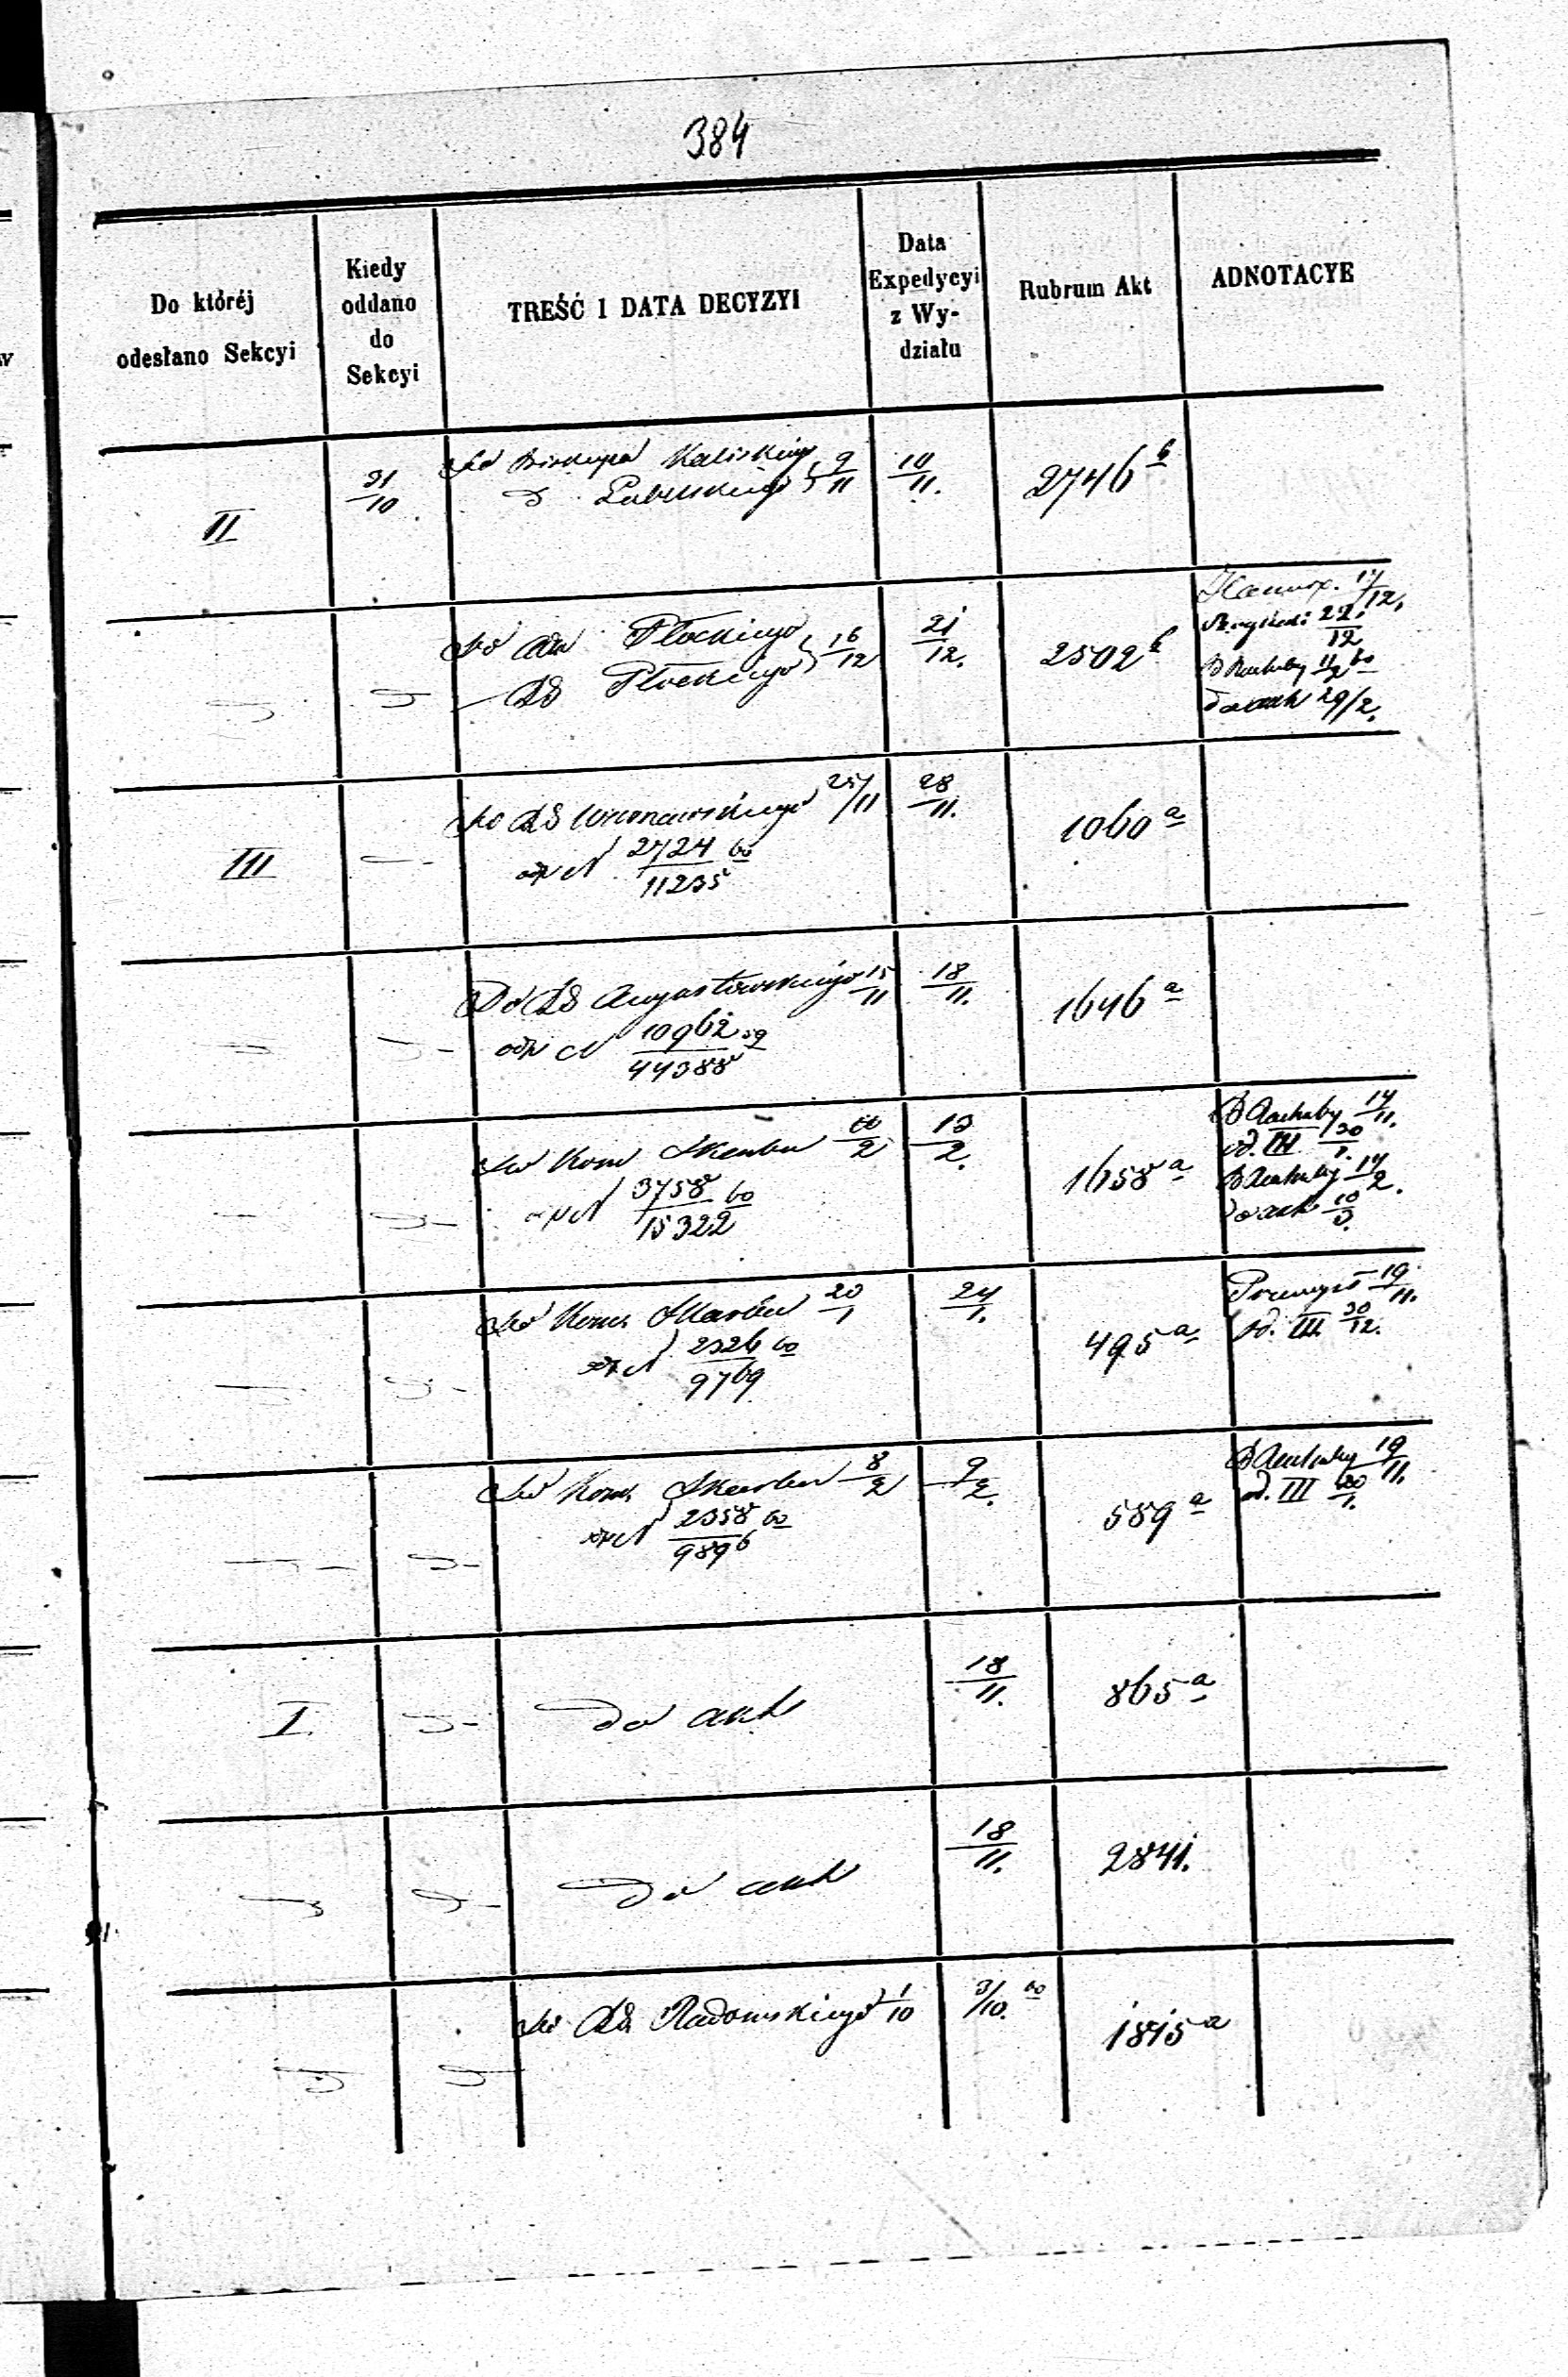 384
Do któréj odesłano Sekcyi
Kiedy oddano do Sekcyi
TREŚĆ I DATA DECYZYI
Data Expedycyi z Wydziału
Rubrum Akt
ADNOTACYE
II
31/10
Do Biskupa Kaliskiego
d Lubelskiego } 9/11
10/11.
2746 b
Do Płockiego
RG Płockiego } 16/12
21/12.
2502 b
17/12.
22/12
B Rachuby 11/2 60
do akt 29/2.
III
Do RG Warszawskiego 25/11
odp N 2724/11235 60
28/11.
1060 a
Do RG Augustowskiego 15/11
odp N 10962/44388 59
18/11.
1646 a
Do Kom Skarbu /2
odp N 3758/15322 60
13/2.
1658 a
B Rachuby 14/11.
od. III 30/1.
B Rachuby 14/2.
do akt 10/3.
Do Kom Skarbu 20/1
odp N 2326/9769 60
24/1.
495 a
Przemysł 19/11.
od. III 30/12.
Do Kom Skarbu 8/2
odp N 2358/9896 60
9/2.
589 a
B Rachuby 19/11.
od. III 20/1.
I.
do akt
18/11.
865 a
do akt
18/11.
2841.
Do RG Radomskiego 1/10
3/10. 60
1815 a